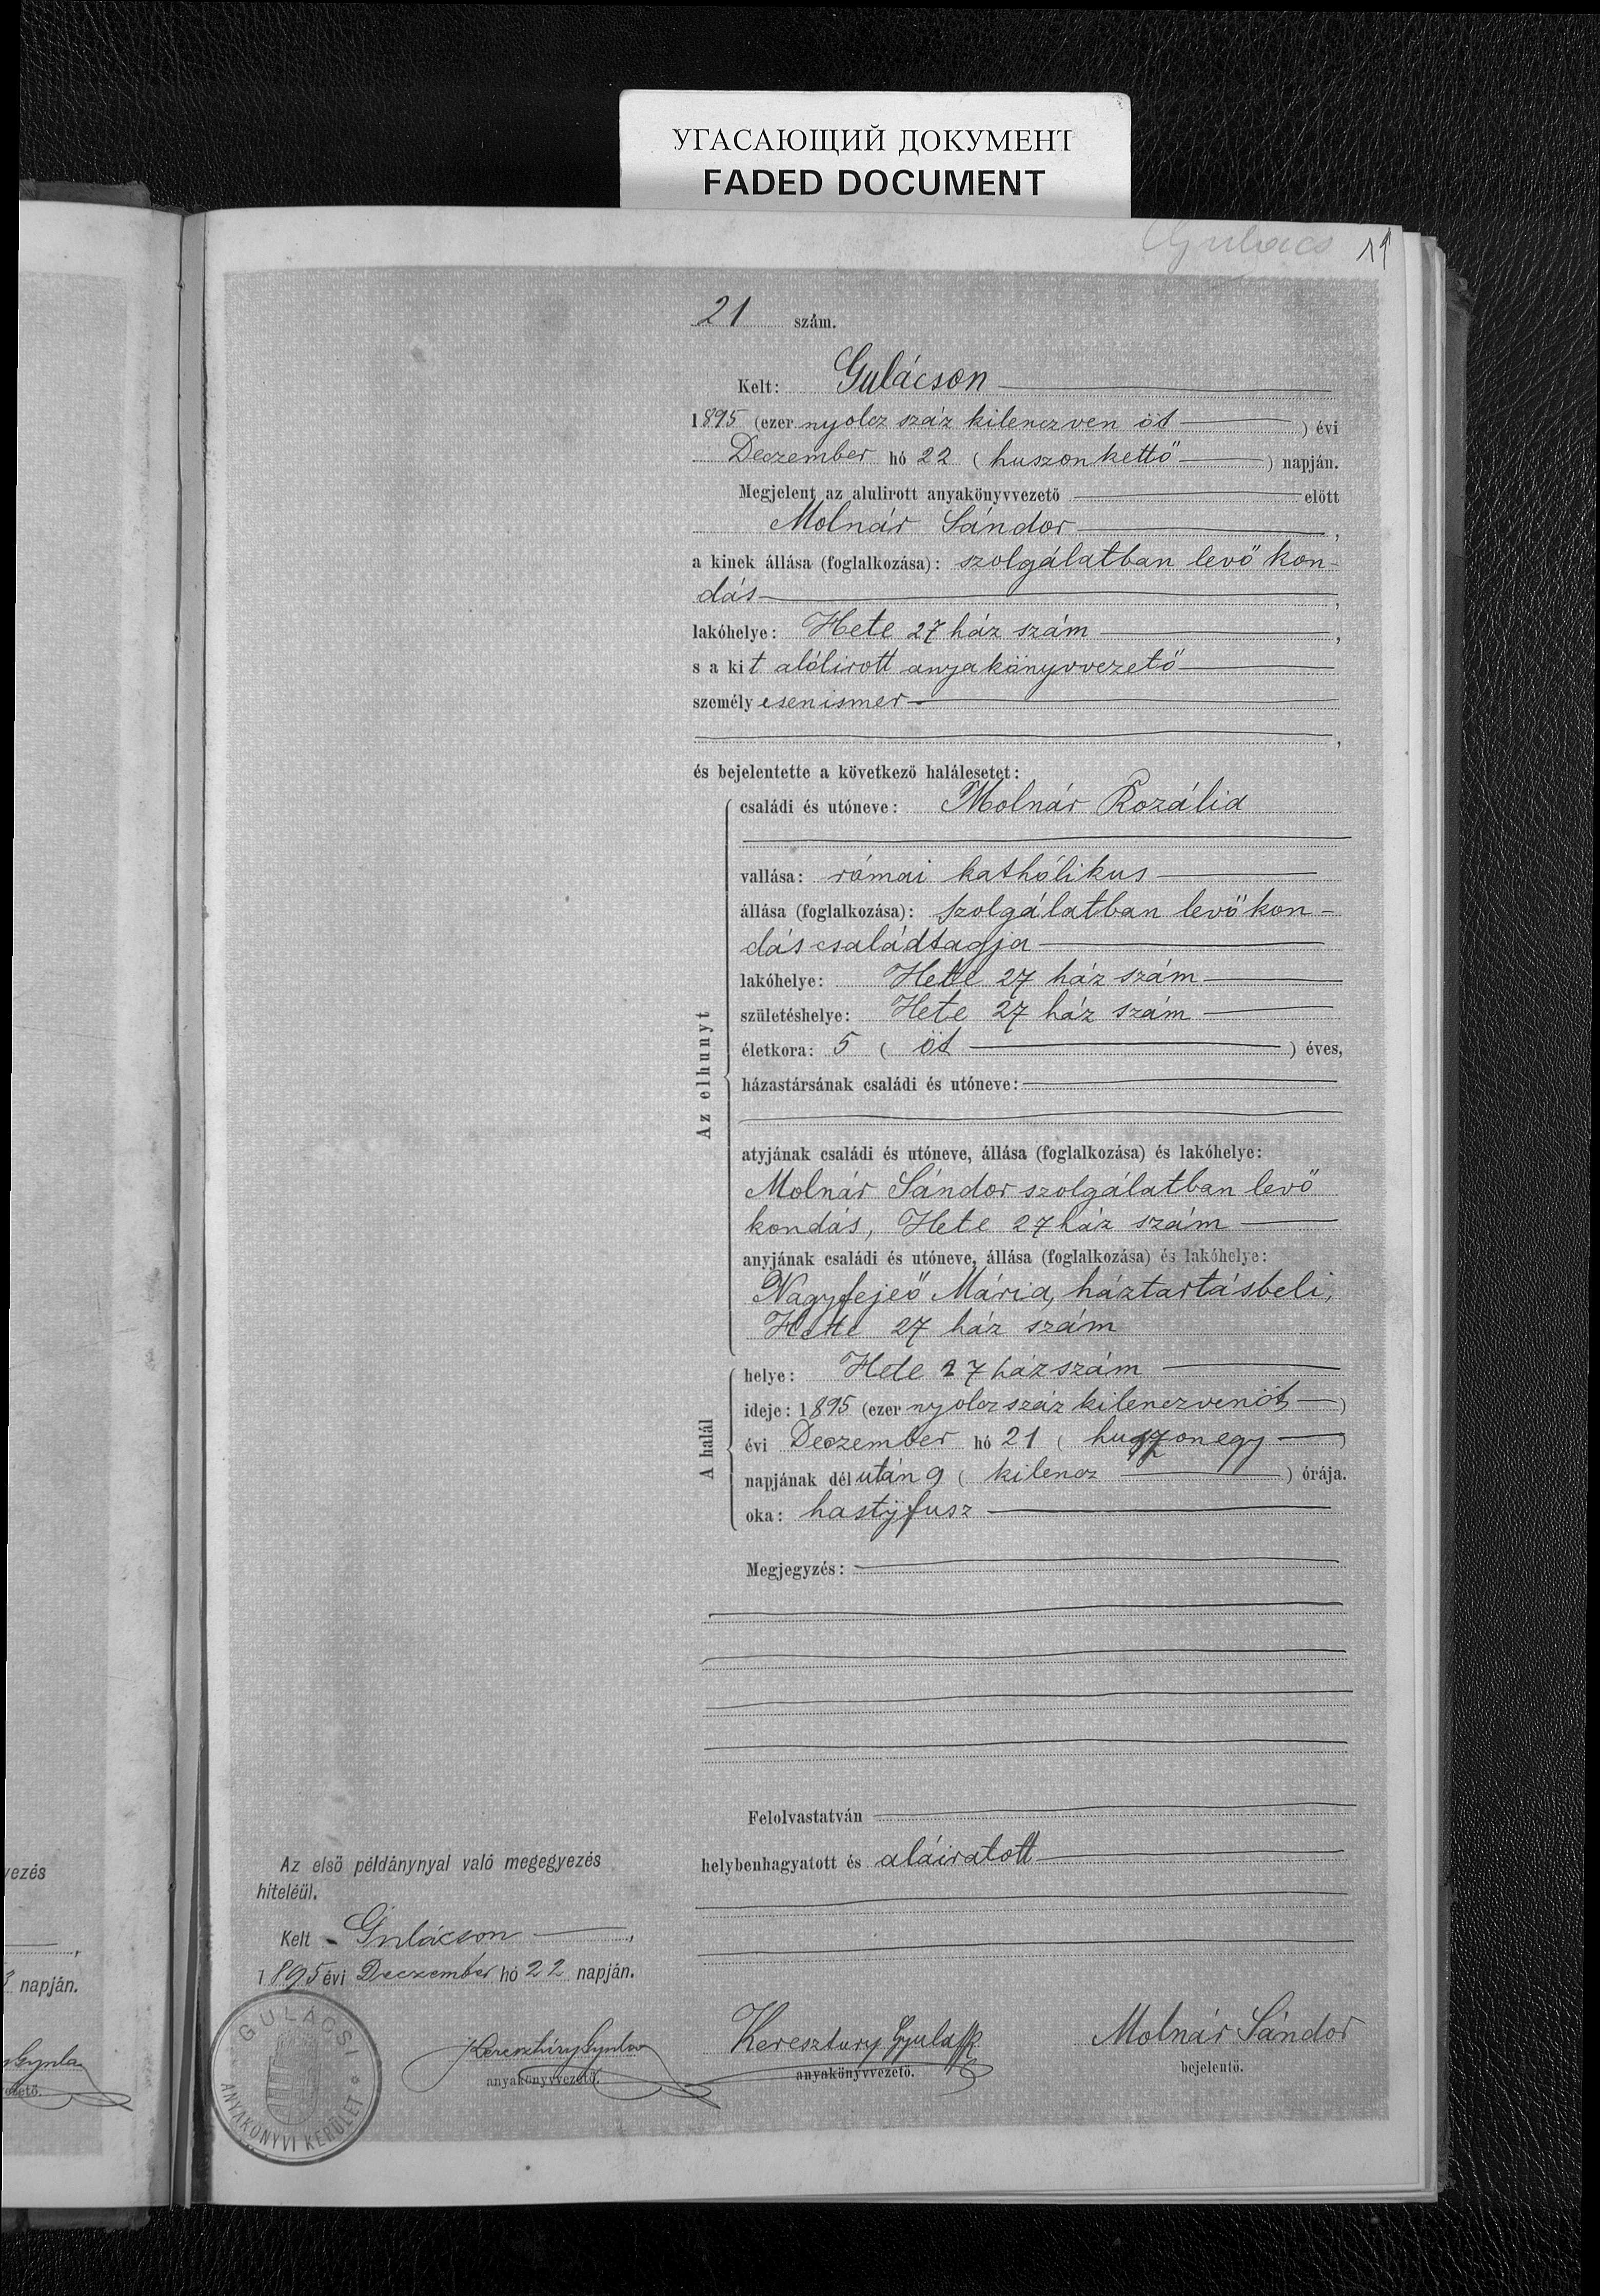 УГАСАЮЩИЙ ДОКУМЕНТ
FADED DOCUMENT
Gulács 11
21 szám.
Kelt: Gulácson
1895 (ezer nyolcz száz kilenczven öt ) évi
Deczember hó 22 ( huszonkettő ) napján.
Megjelent az alulirott anyakönyvvezető előtt
Molnár Sándor ,
a kinek állása (foglalkozása): szolgálatban levő kon-
dás ,
lakóhelye: Hete 27 ház szám ,
s a kit alólirott anyakönyvvezető
személyesen ismer
,
és bejelentette a következő halálesetet:
Az elhunyt
családi és utóneve: Molnár Rozália
vallása: római kathólikus
állása (foglalkozása): szolgálatban levő kon-
dás családtagja
lakóhelye: Hete 27 ház szám
születéshelye: Hete 27 ház szám
életkora: 5 ( öt ) éves,
házastársának családi és utóneve:
atyjának családi és utóneve, állása (foglalkozása) és lakóhelye:
Molnár Sándor szolgálatban levő
kondás, Hete 27 ház szám
anyjának családi és utóneve, állása (foglalkozása) és lakóhelye:
Nagyfejeő Mária, háztartásbeli,
Hete 27 ház szám
A halál
helye: Hete 27 ház szám
ideje: 1895 (ezer nyolcz száz kilenczvenöt )
évi Deczember hó 21 ( huszonegy )
napjának délután 9 ( kilencz ) órája.
oka: hastÿfusz
Megjegyzés:
Felolvastatván
helybenhagyatott és aláiratott
Az első példánynyal való megegyezés
hiteléül.
Kelt Gulácson ,
1895 évi Deczember hó 22 napján.
GULÁCSI ANYAKÖNYVI KERÜLET
Keresztúry Gyula
anyakönyvvezető.
Keresztury Gyula
anyakönyvvezető.
Molnár Sándor
bejelentő.
yezés
,
napján.
Gyula